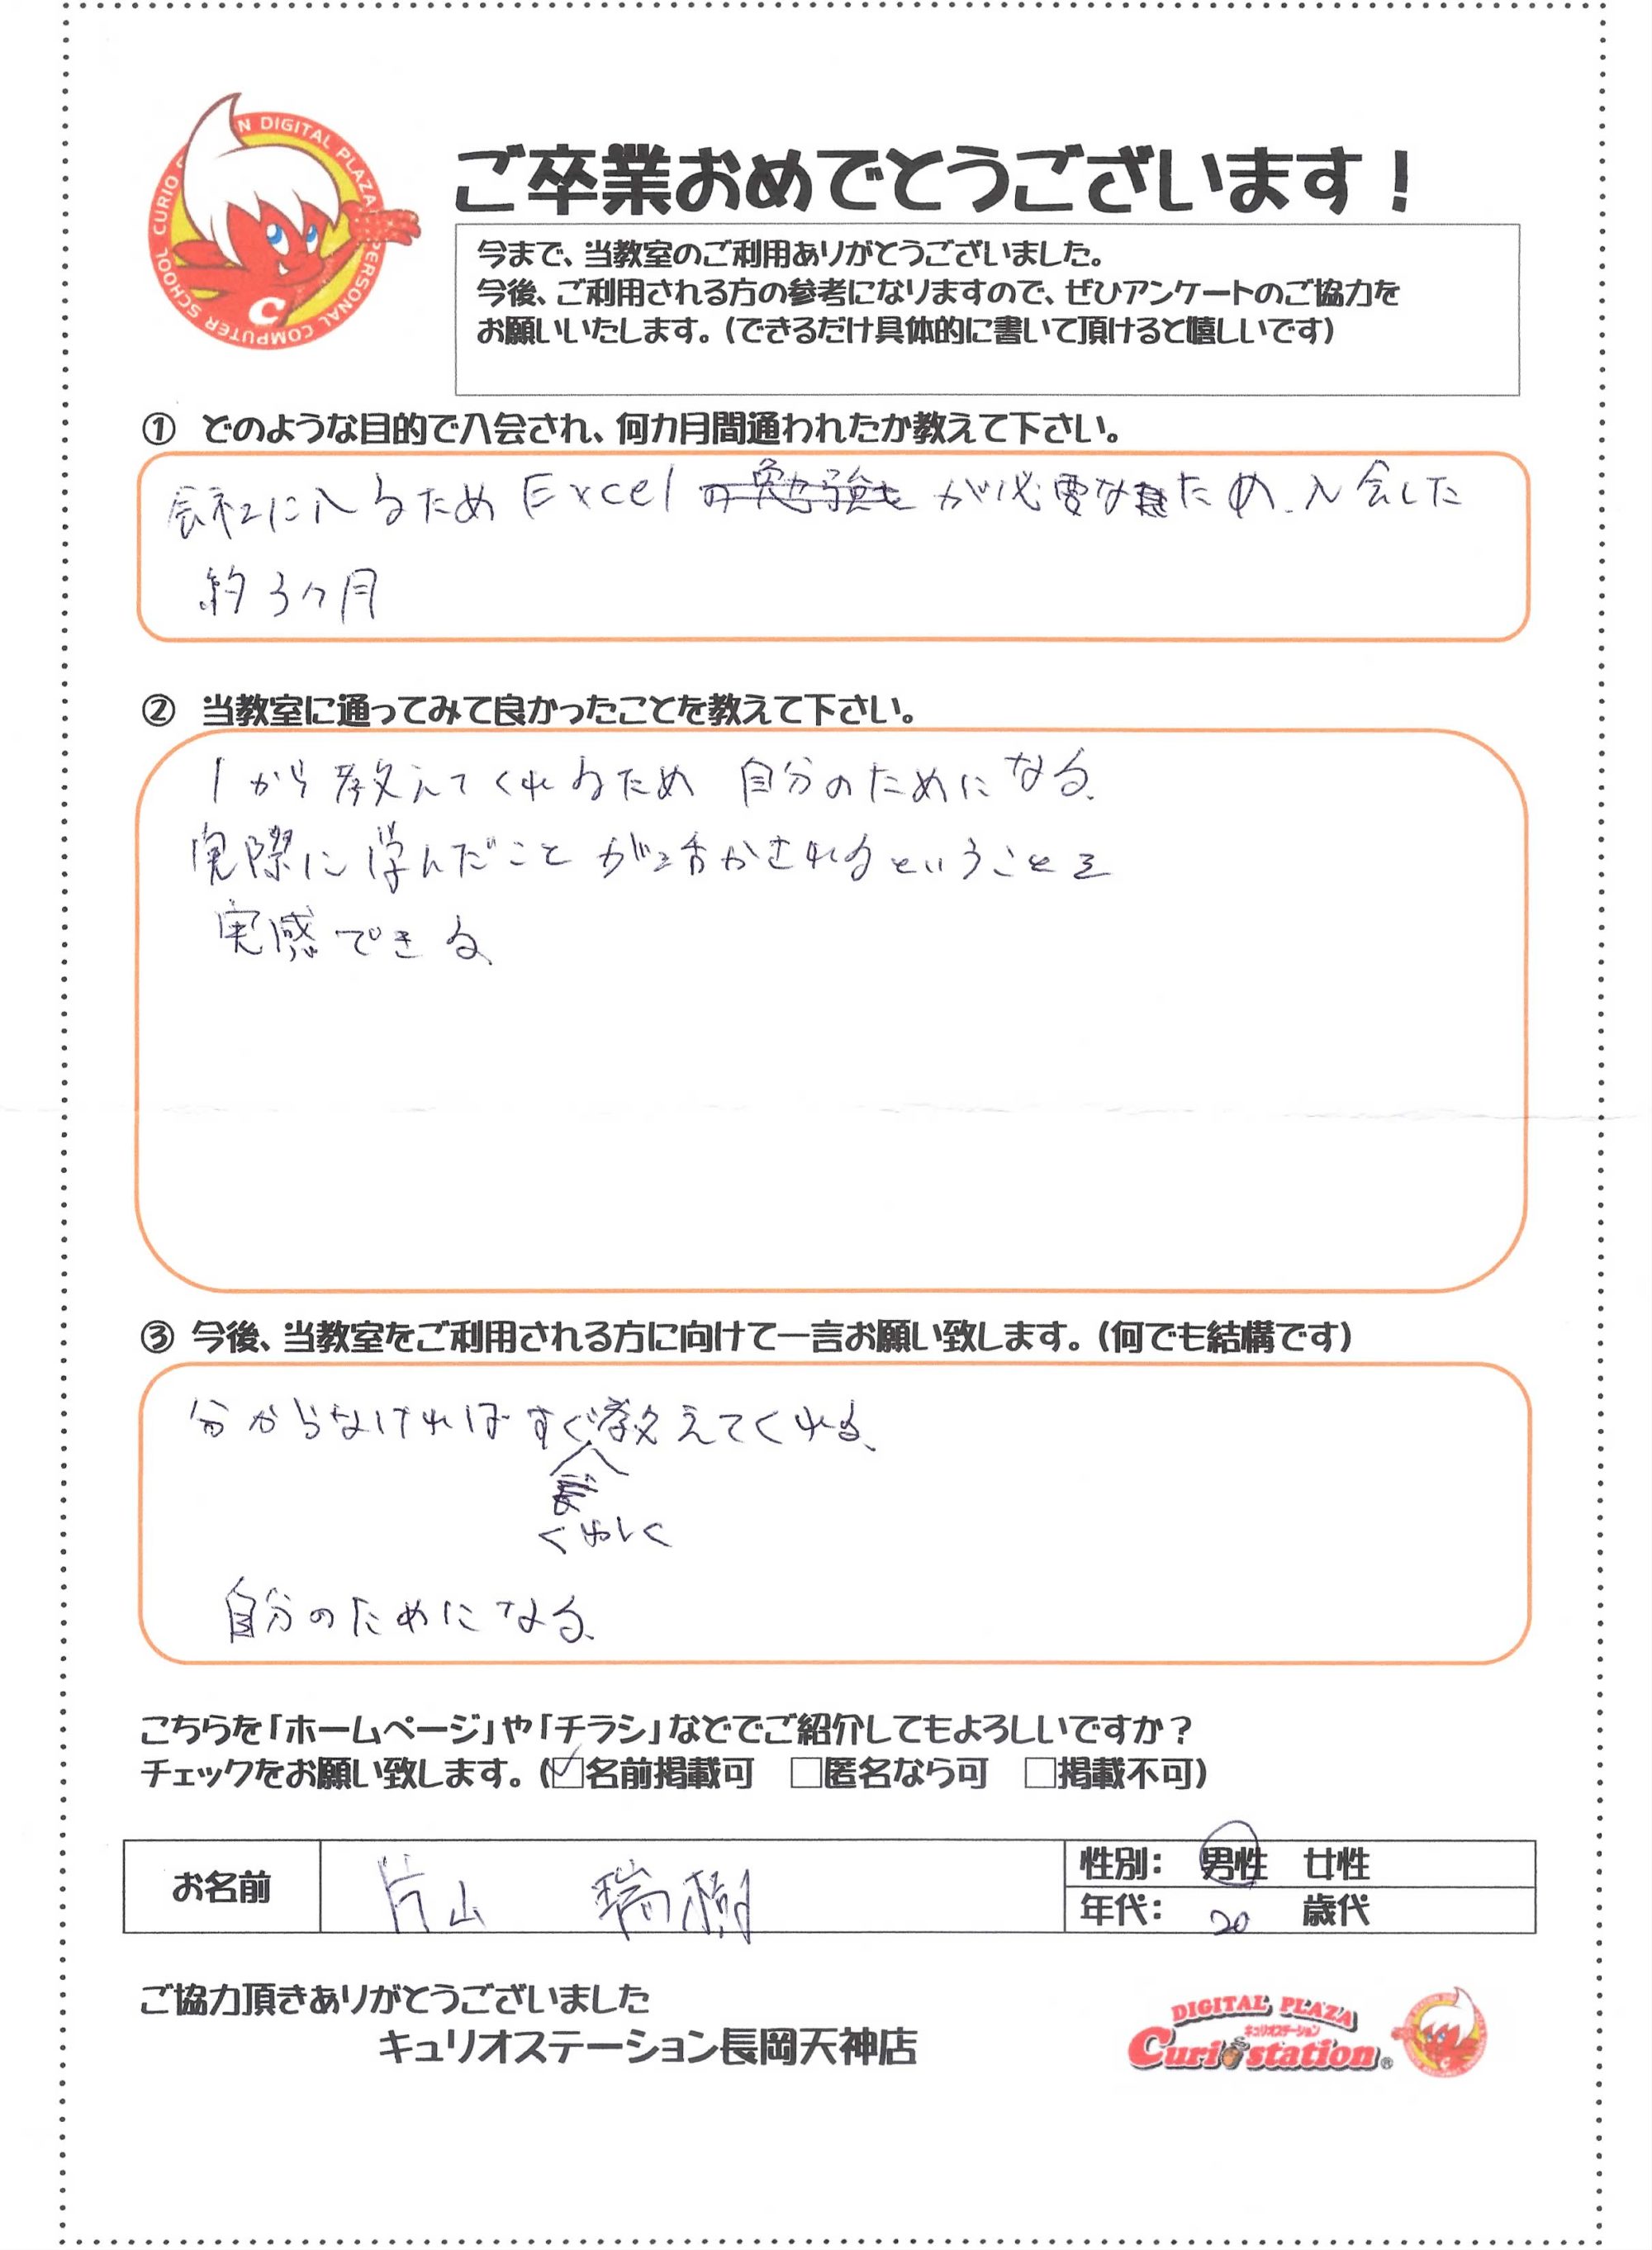 CURIO STATION DIGITAL PLAZA PERSONAL COMPUTER SCHOOL
ご卒業おめでとうございます！
今まで、当教室のご利用ありがとうございました。
今後、ご利用される方の参考になりますので、ぜひアンケートのご協力を
お願いいたします。（できるだけ具体的に書いて頂けると嬉しいです）
① どのような目的で入会され、何カ月間通われたか教えて下さい。
会社に入るためExcelの勉強が必要なため、入会した
約3ヶ月
② 当教室に通ってみて良かったことを教えて下さい。
1から教えてくれるため 自分のためになる。
実際に学んだことが活かされるということを
実感できる。
③ 今後、当教室をご利用される方に向けて一言お願い致します。（何でも結構です）
分からなければすぐ教えてくれる。
くわしく
自分のためになる。
こちらを「ホームページ」や「チラシ」などでご紹介してもよろしいですか？
チェックをお願い致します。（☑名前掲載可 □匿名なら可 □掲載不可）
お名前 片山 瑞樹 性別： 男性 女性
年代： 20 歳代
ご協力頂きありがとうございました
キュリオステーション長岡天神店
DIGITAL PLAZA
キュリオステーション
Curio station®